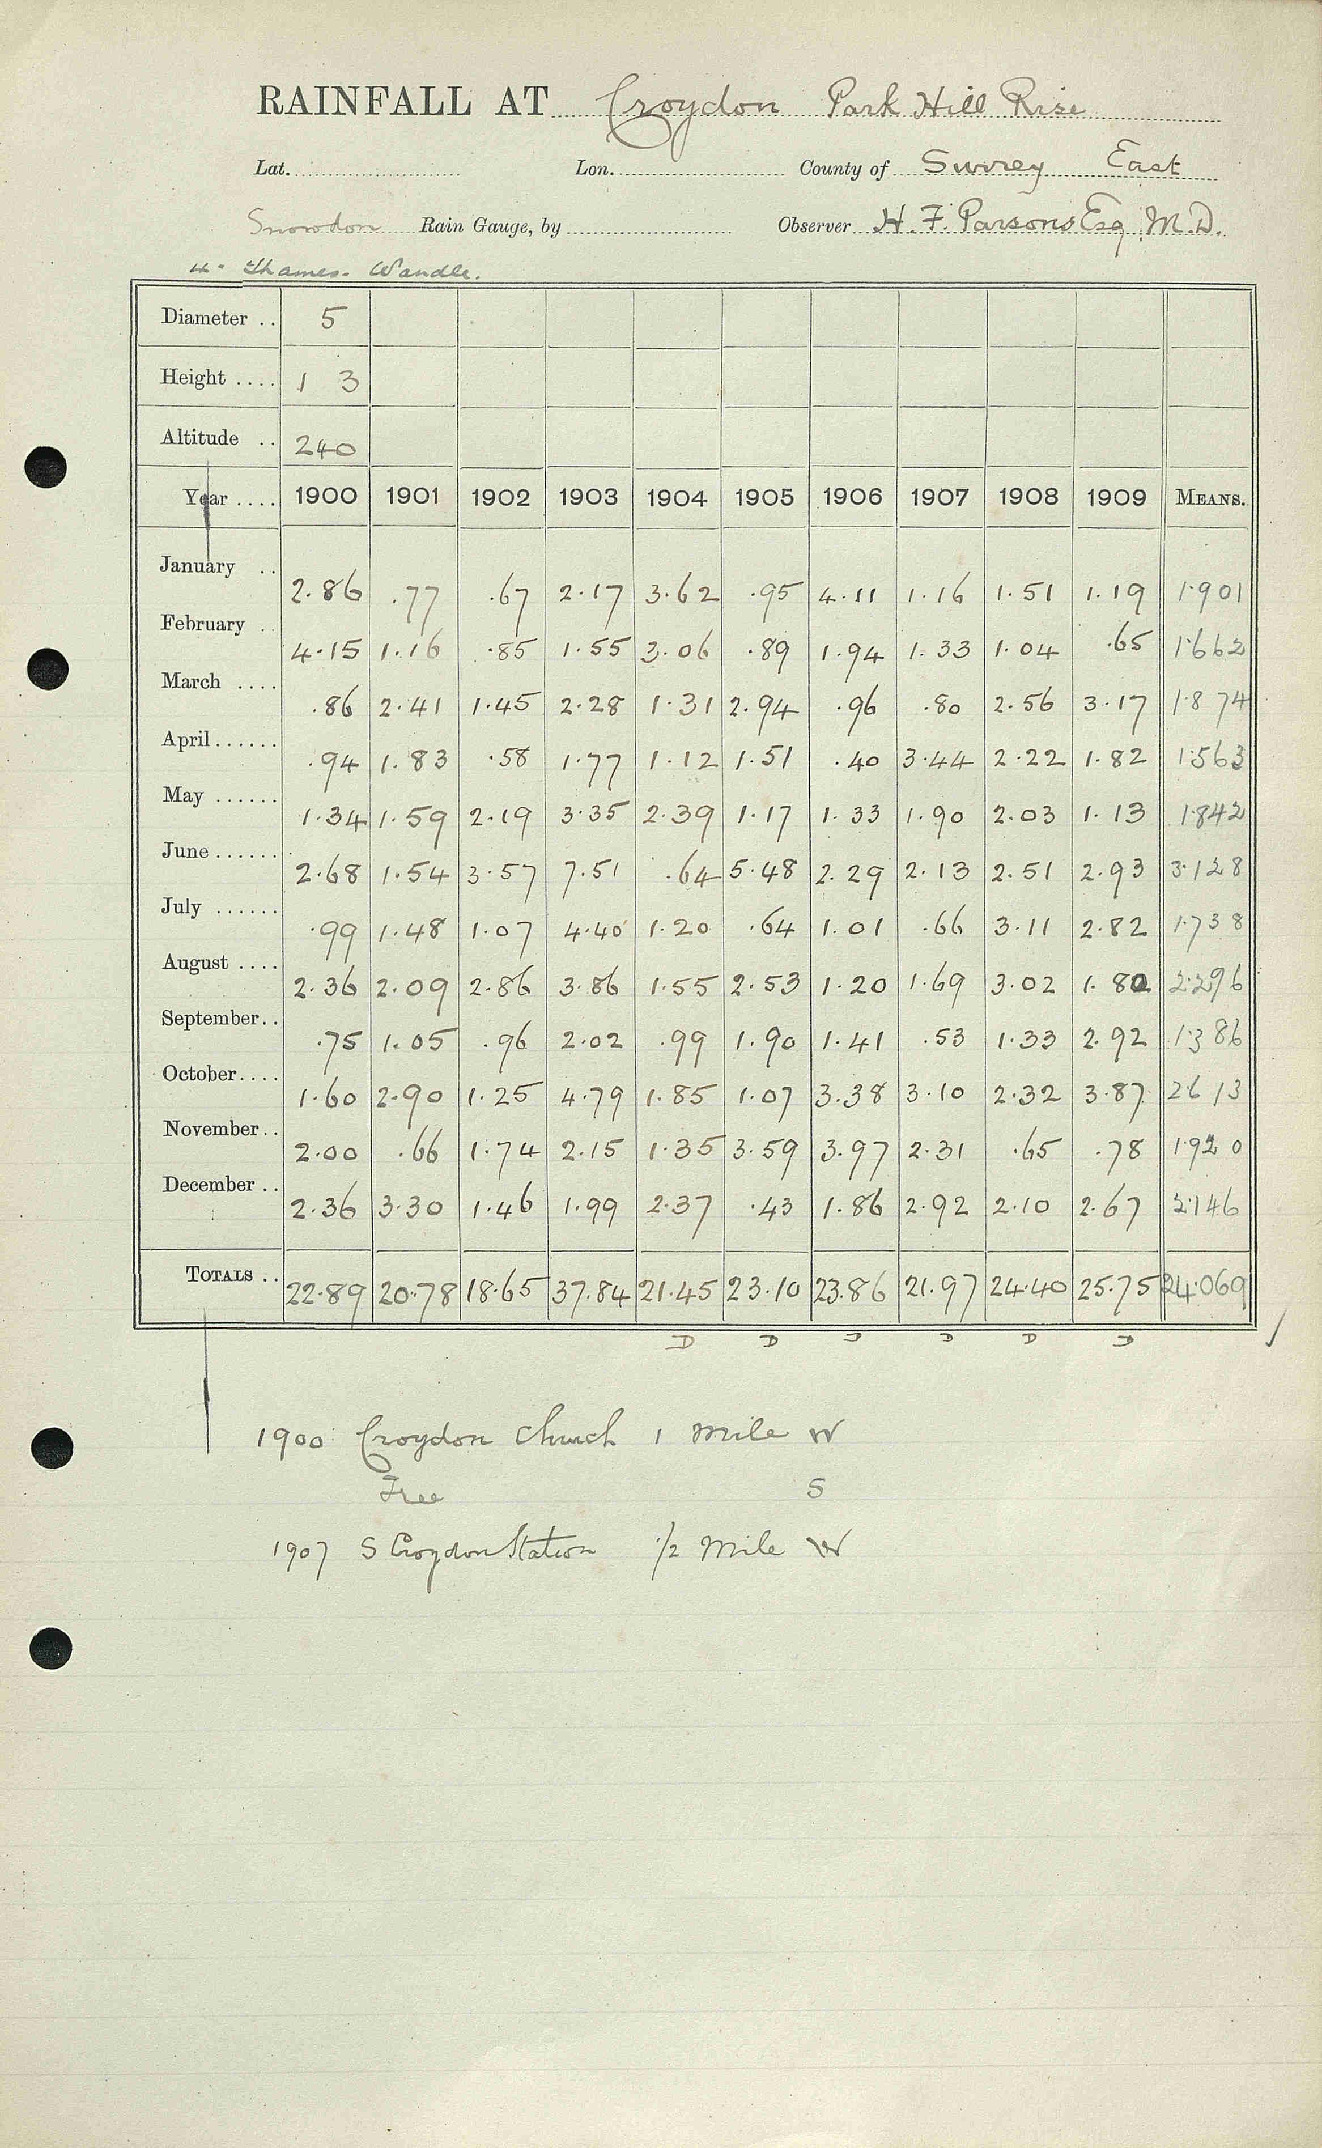 RAINFALL AT Croydon Park Hill Rise
Lat. Lon. County of Surrey East
Snowdon Rain Gauge, by Observer H. F. Parsons Esq. M.D.
4. Thames. Wandle.
Diameter .. 5
Height .... 1 3
Altitude .. 240
Year .... 1900 1901 1902 1903 1904 1905 1906 1907 1908 1909 MEANS.
January .. 2.86 .77 .67 2.17 3.62 .95 4.11 1.16 1.51 1.19 1.901
February .. 4.15 1.16 .85 1.55 3.06 .89 1.94 1.33 1.04 .65 1.662
March .... .86 2.41 1.45 2.28 1.31 2.94 .96 .80 2.56 3.17 1.874
April...... .94 1.83 .58 1.77 1.12 1.51 .40 3.44 2.22 1.82 1.563
May ...... 1.34 1.59 2.19 3.35 2.39 1.17 1.33 1.90 2.03 1.13 1.842
June...... 2.68 1.54 3.57 7.51 .64 5.48 2.29 2.13 2.51 2.93 3.128
July ...... .99 1.48 1.07 4.40 1.20 .64 1.01 .66 3.11 2.82 1.738
August .... 2.36 2.09 2.86 3.86 1.55 2.53 1.20 1.69 3.02 1.80 2.296
September.. .75 1.05 .96 2.02 .99 1.90 1.41 .53 1.33 2.92 1.386
October.... 1.60 2.90 1.25 4.79 1.85 1.07 3.38 3.10 2.32 3.87 2613
November.. 2.00 .66 1.74 2.15 1.35 3.59 3.97 2.31 .65 .78 1920
December .. 2.36 3.30 1.46 1.99 2.37 .43 1.86 2.92 2.10 2.67 2.146
TOTALS .. 22.89 20.78 18.65 37.84 21.45 23.10 23.86 21.97 24.40 25.75 24.069
D D D D D D
1900 Croydon Church 1 Mile W
Free S
1907 S Croydon Station 1/2 Mile W